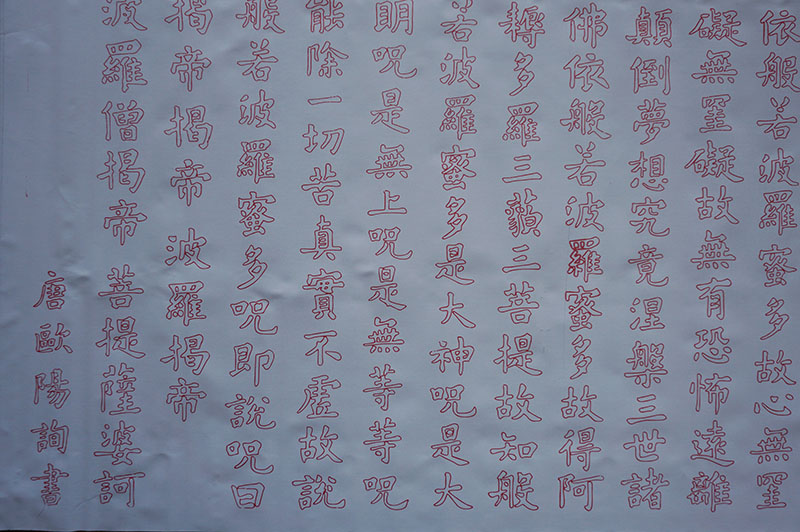 依般若波羅蜜多故心無罣
礙無罣礙故無有恐怖遠離
顛倒夢想究竟涅槃三世諸
佛依般若波羅蜜多故得阿
耨多羅三藐三菩提故知般
若波羅蜜多是大神咒是大
明咒是無上咒是無等等咒
能除一切苦真實不虛故說
般若波羅蜜多咒即說咒曰
揭帝揭帝 波羅揭帝
波羅僧揭帝 菩提薩婆訶
唐歐陽詢書